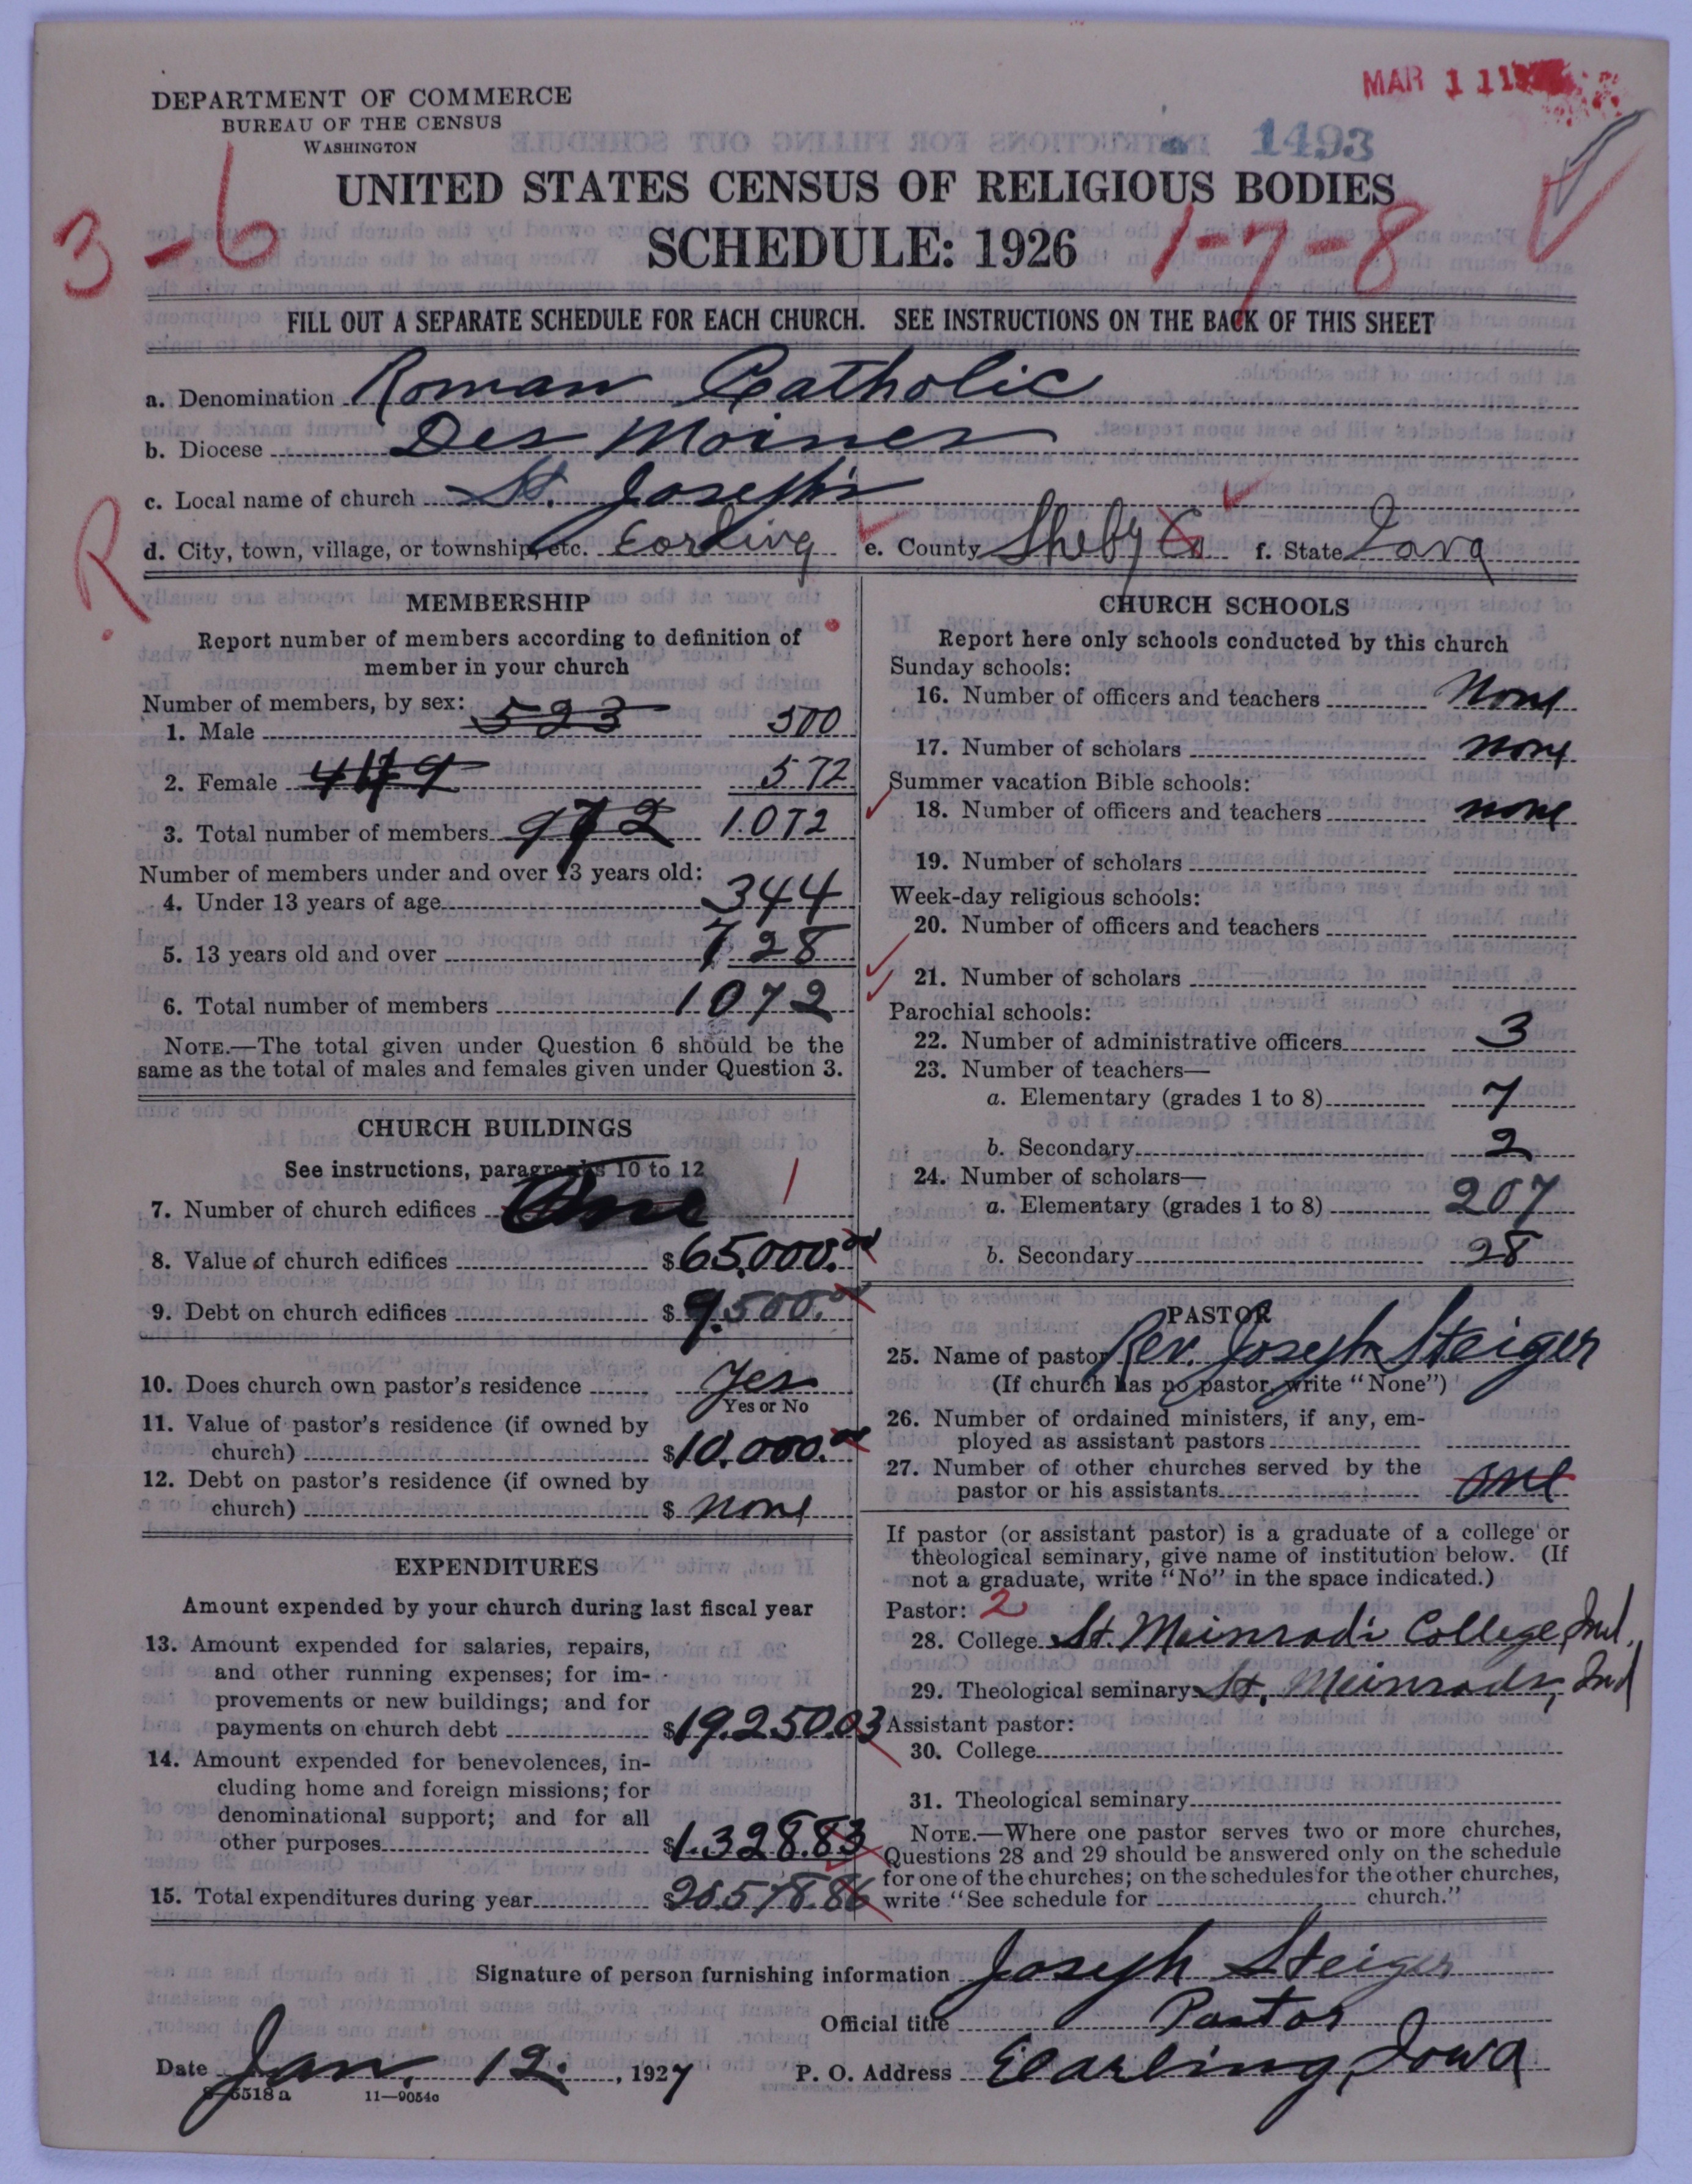 DEPARTMENT OF COMMERCE
BUREAU OF THE CENSUS
WASHINGTON
MAR 11
1493
UNITED STATES CENSUS OF RELIGIOUS BODIES
3-6
SCHEDULE: 1926
1-7-8
FILL OUT A SEPARATE SCHEDULE FOR EACH CHURCH. SEE INSTRUCTIONS ON THE BACK OF THIS SHEET
a. Denomination Roman Catholic
b. Diocese Des Moines
c. Local name of church St. Joseph's
R
d. City, town, village, or township, etc. Earling e. County Shelby Co f. State Iowa
MEMBERSHIP
Report number of members according to definition of
member in your church
Number of members, by sex:
1. Male 523 500
2. Female 449 572
3. Total number of members 972 1.072
Number of members under and over 13 years old:
4. Under 13 years of age 344
5. 13 years old and over 728
6. Total number of members 1072
NOTE.—The total given under Question 6 should be the
same as the total of males and females given under Question 3.
CHURCH BUILDINGS
See instructions, paragraphs 10 to 12
7. Number of church edifices One 1
8. Value of church edifices $65,000.00
9. Debt on church edifices $9.500.00
10. Does church own pastor's residence Yes
Yes or No
11. Value of pastor's residence (if owned by
church) $10.000.00
12. Debt on pastor's residence (if owned by
church) $ none
EXPENDITURES
Amount expended by your church during last fiscal year
13. Amount expended for salaries, repairs,
and other running expenses; for im-
provements or new buildings; and for
payments on church debt $19.250.03
14. Amount expended for benevolences, in-
cluding home and foreign missions; for
denominational support; and for all
other purposes $1.328.83
15. Total expenditures during year $20.578.86
CHURCH SCHOOLS
Report here only schools conducted by this church
Sunday schools:
16. Number of officers and teachers None
17. Number of scholars none
Summer vacation Bible schools:
18. Number of officers and teachers none
19. Number of scholars
Week-day religious schools:
20. Number of officers and teachers
21. Number of scholars
Parochial schools:
22. Number of administrative officers 3
23. Number of teachers—
a. Elementary (grades 1 to 8) 7
b. Secondary 2
24. Number of scholars—
a. Elementary (grades 1 to 8) 207
b. Secondary 28
PASTOR
25. Name of pastor Rev. Joseph Steiger
(If church has no pastor, write "None")
26. Number of ordained ministers, if any, em-
ployed as assistant pastors
27. Number of other churches served by the
pastor or his assistants one
If pastor (or assistant pastor) is a graduate of a college or
theological seminary, give name of institution below. (If
not a graduate, write "No" in the space indicated.)
Pastor: 2
28. College St. Meinradi College, Ind.
29. Theological seminary St. Meinrads, Ind
Assistant pastor:
30. College
31. Theological seminary
NOTE.—Where one pastor serves two or more churches,
Questions 28 and 29 should be answered only on the schedule
for one of the churches; on the schedules for the other churches,
write "See schedule for church."
Signature of person furnishing information Joseph Steiger
Official title Pastor
Date Jan. 12. , 1927 P. O. Address Earling, Iowa
11—9054a